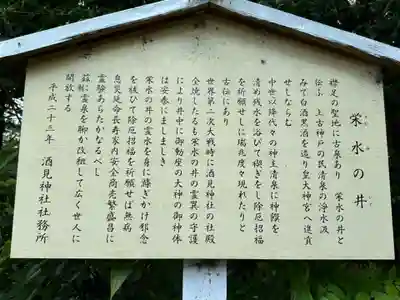 栄水の井
襟足の聖地に古泉あり　栄水の井と
伝ふ　上古神戸の民清泉の浄水汲
みて白酒黒酒を造り皇大神宮へ進貢
せしならむ
中世以降代々の神主清泉に神饌を
清め残水を浴びて禊ぎをし除厄招福
を祈願せしに瑞兆度々現れたりと
古伝にあり
世界第二次大戦時に酒見神社の社殿
全焼したるも栄水の井の霊異の守護
により井中に御動座の大神の御神体
は安泰にましましき
栄水の井の霊水を身に濺ぎかけ邪念
を祓ひて除厄招福を祈願せば無病
息災延命長寿家内安全商売繁盛昌に
霊験あらたかなるべし
茲に霊泉を聊か改粧して広く世人に
開放する
平成二十三年　酒見神社社務所